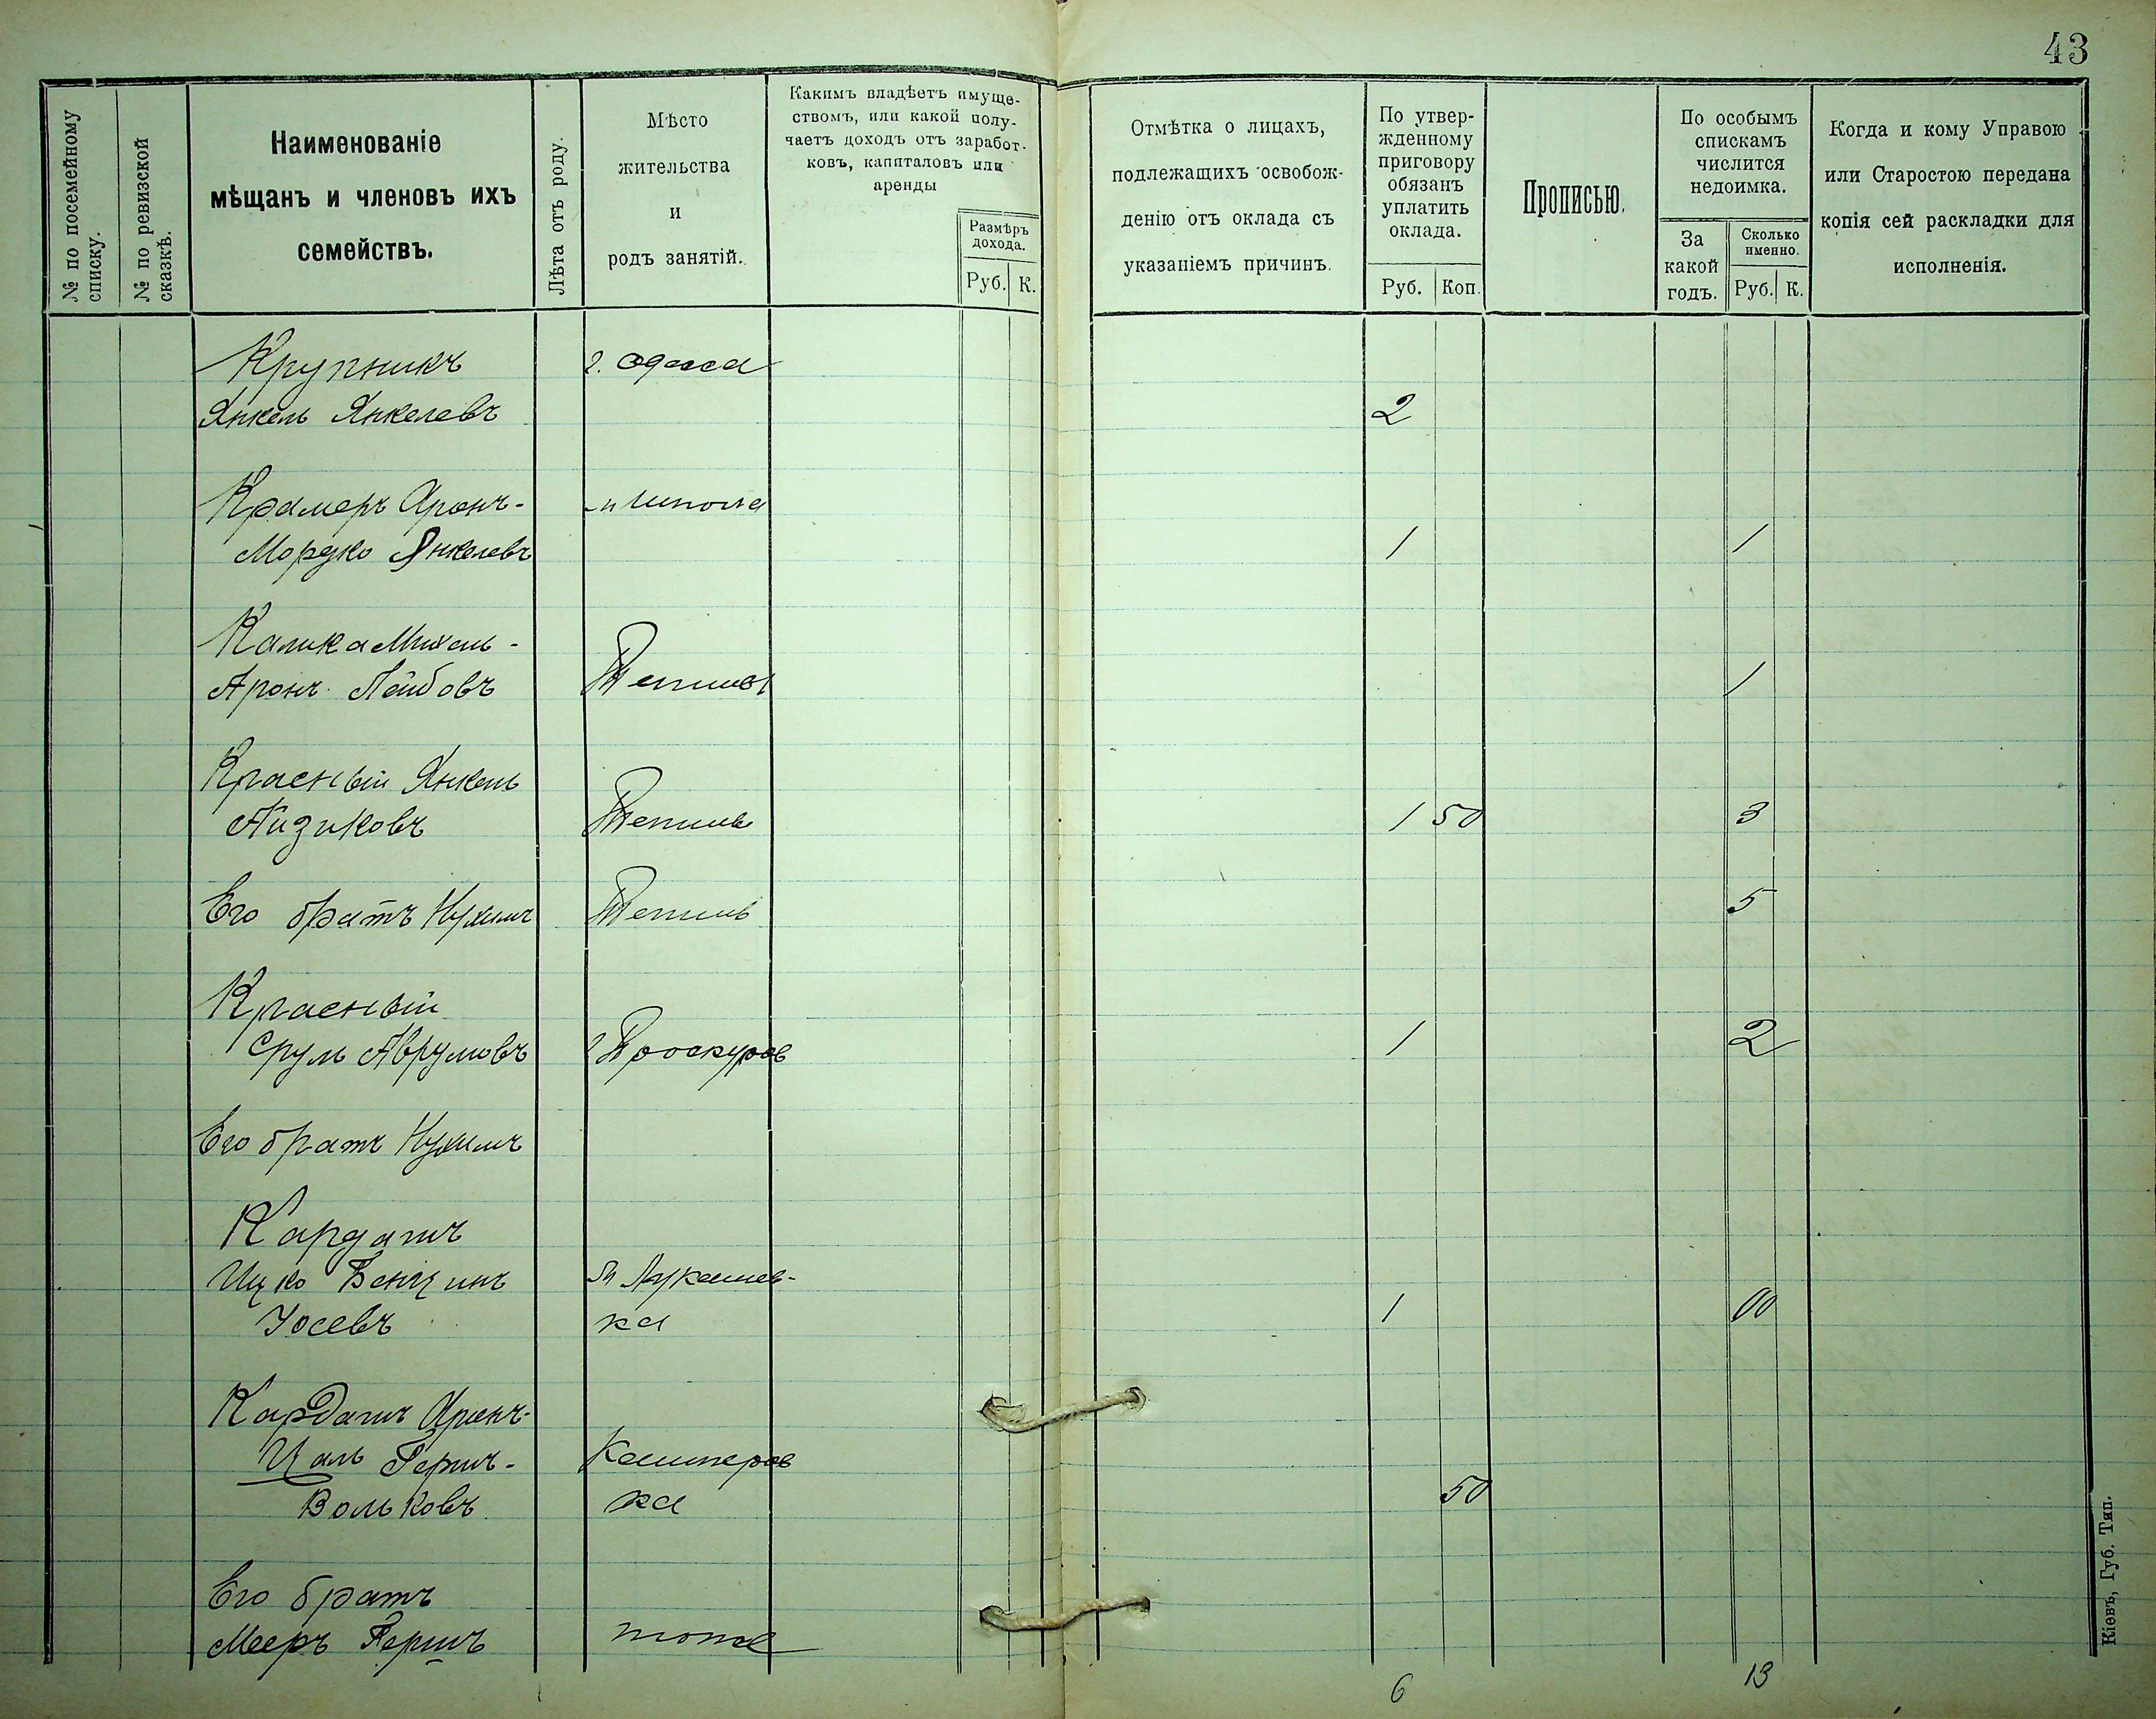 43
№ по посемейному
списку.
№ по ревизской
сказкѣ.
Наименованіе
мѣщанъ и членовъ ихъ
семействъ.
Лѣта отъ роду.
Мѣсто
жительства
и
родъ занятій.
Какимъ владѣетъ имуще-
ствомъ, или какой полу-
чаетъ доходъ отъ заработ-
ковъ, капиталовъ или
аренды
Размѣръ
дохода.
Руб. К.
Отмѣтка о лицахъ,
подлежащихъ освобож-
денію отъ оклада съ
указаніемъ причинъ.
По утвер-
жденному
приговору
обязанъ
уплатить
оклада.
Руб. Коп.
Прописью.
По особымъ
спискамъ
числится
недоимка.
За
какой
годъ.
Сколько
именно.
Руб. К.
Когда и кому Управою
или Старостою передана
копія сей раскладки для
исполненія.
Крупникъ г. Одесса
Янкель Янкелевъ 2
Крамеръ Аронъ- Шпола
Мордко Янкелевъ 1 1
Калика Михель-
Аронъ Лейбовъ 1
Красный Янкель
Айзиковъ 1 50 3
Его братъ Нухимъ 5
Красный
Сруль Аврумовъ г Проскуров 1 2
Его братъ Нухимъ
Кардашъ
Ицко Бенцинъ М Лукашев-
Іосевъ ка 1
Кардашъ Аронъ-
Цаль Герш- Кашперов
Вольковъ ка 50
Его братъ
Мееръ Гершъ тоже
6 13
Кіевъ, Губ. Тип.